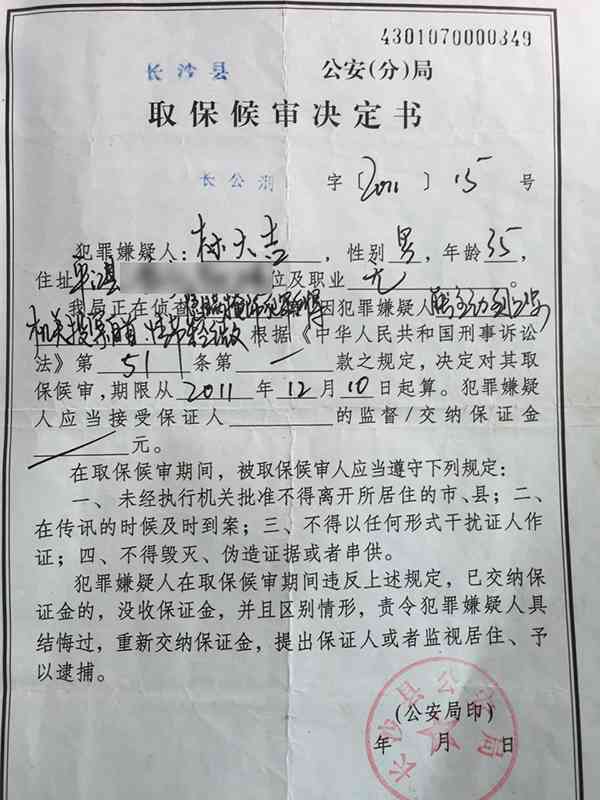 4301070000349
长沙县 公安(分)局
取保候审决定书
长公刑 字〔2011〕15号
犯罪嫌疑人：林大吉，性别男，年龄35，
住址 位及职业无。
我局正在侦查 因犯罪嫌疑人能主动到公安
机关投案自首，情节 根据《中华人民共和国刑事诉讼
法》第51条第一款之规定，决定对其取
保候审，期限从2011年12月10日起算。犯罪嫌疑
人应当接受保证人 的监督/交纳保证金
元。
在取保候审期间，被取保候审人应当遵守下列规定：
一、未经执行机关批准不得离开所居住的市、县；二、
在传讯的时候及时到案；三、不得以任何形式干扰证人作
证；四、不得毁灭、伪造证据或者串供。
犯罪嫌疑人在取保候审期间违反上述规定，已交纳保
证金的，没收保证金，并且区别情形，责令犯罪嫌疑人具
结悔过，重新交纳保证金，提出保证人或者监视居住、予
以逮捕。
长沙县公安局
(公安局印)
年 月 日